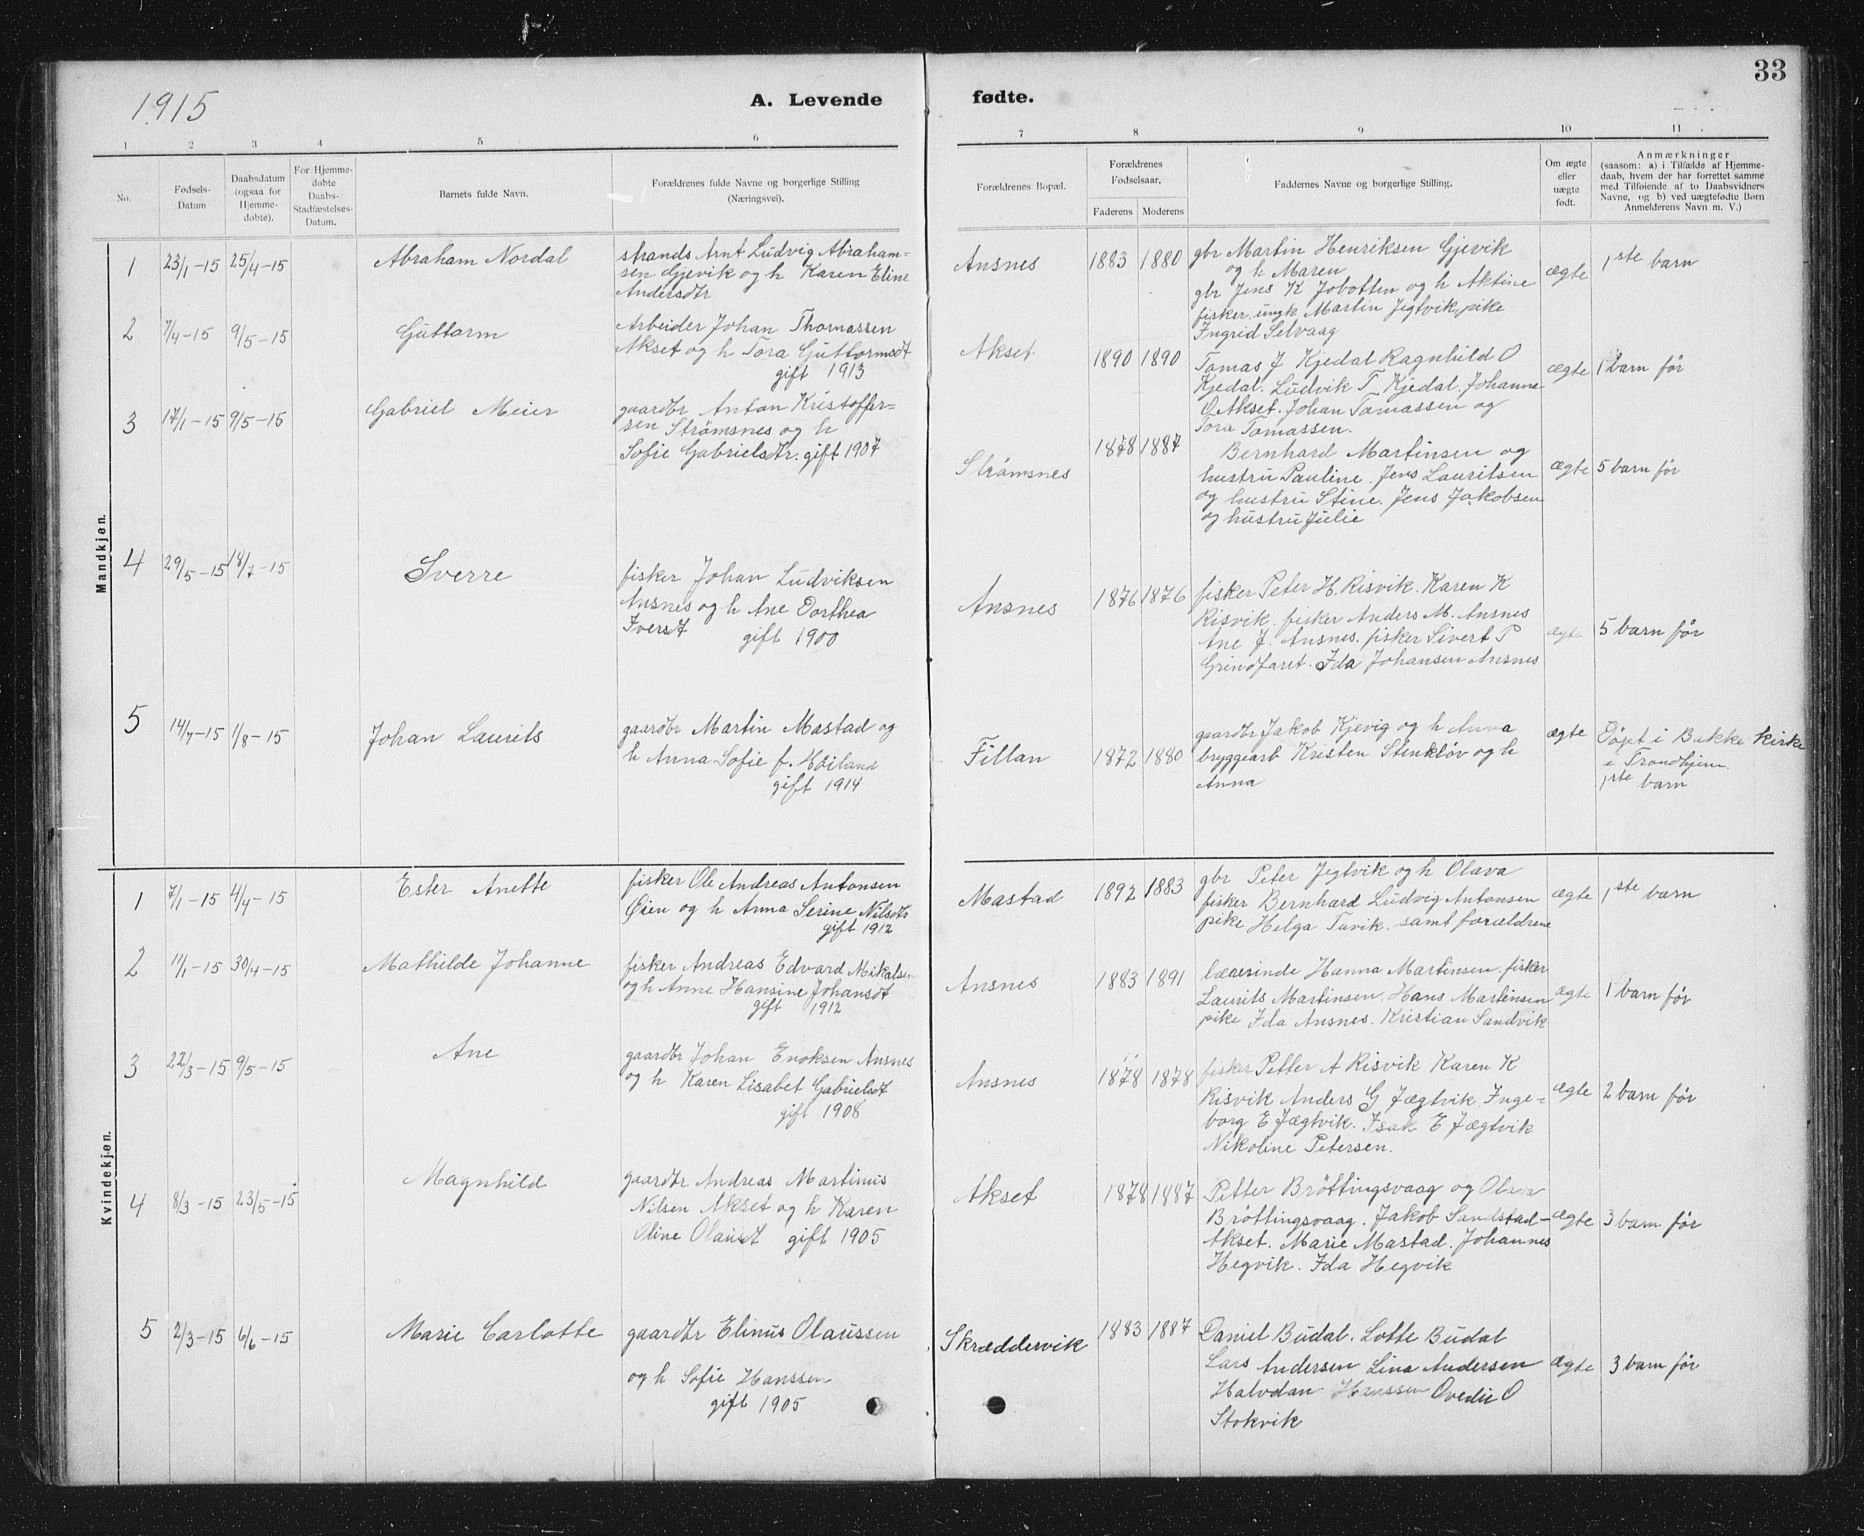 33
1915
A. Levende fødte.
1 2 3 4 5 6 7 8 9 10 11
No.
Fødsels-
Datum
Daabsdatum
(ogsaa for
Hjemme-
døbte).
For Hjemme-
døbte
Daabs-
Stadfæstelses-
Datum.
Barnets fulde Navn.
Forældrenes fulde Navne og borgerlige Stilling
(Næringsvei).
Forældrenes Bopæl.
Forældrenes
Fødselsaar.
Faderens Moderens
Faddernes Navne og borgerlige Stilling.
Om ægte
eller
uægte
født.
Anmærkninger
(saasom: a) i Tilfælde af Hjemme-
daab, hvem der har forrettet samme
med Tilføiende af to Daabsvidners
Navne, og b) ved uægtefødte Børn
Anmelderens Navn m. V.)
Mandkjøn.
1 23/1-15 25/4-15 Abraham Nordal
strands Arnt Ludvig Abraham-
sen Gjevik og h Karen Eline
Andersdtr
Ansnes 1883 1880
gbr Martin Henriksen Gjevik
og h Maren
gbr Jens K Jobotten og h Aktine
fisker ungk Martin Jegtvik, pike
Ingrid Selvaag
ægte 1ste barn
2 7/4-15 9/5-15 Guttorm
Arbeider Johan Thomassen
Akset og h Tora Guttormsdt
gift 1913
Akset 1890 1890
Tomas J Kjedal Ragnhild O
Kjedal. Ludvik T. Kjedal. Johanne
O Akset. Johan Tomassen og
Tora Tomassen.
ægte 1 barn før
3 17/1-15 9/5-15 Gabriel Meier
gaardbr Anton Kristoffer-
sen Strømsnes og h
Sofie Gabrielsdtr. gift 1907
Strømsnes 1878 1887
Bernhard Martinsen og
hustru Pauline. Jens Lauritsen
og hustru Stine. Jens Jakobsen
og hustru Julie
ægte 5 barn før
4 29/5-15 18/7-15 Sverre
fisker Johan Ludviksen
Ansnes og h Ane Dorthea
Iversdt gift 1900
Ansnes 1876 1876
fisker Peter H. Risvik. Karen K
Risvik. fisker Anders M. Ansnes
Ane J. Ansnes. fisker Sivert P
Grindfaret. Ida Johansen Ansnes
ægte 5 barn før
5 14/7-15 1/8-15 Johan Laurits
gaardbr Martin Mastad og
h Anna Sofie f.
gift 1914
Fillan 1872 1880
gaardbr Jakob Kjevig og h Anna
bryggearb Kristen Stenkløv og h
Anna
ægte Døpt i Bakke kirke
i Trondhjem.
1ste barn
Kvindekjøn.
1 7/1-15 4/4-15 Ester Anette
fisker Ole Andreas Antonsen
Øien og h Anna Serine Nilsdtr
gift 1912
Mastad 1892 1883
gbr Peter Jegtvik og h Olava
fisker Bernhard Ludvig Antonsen
pike Helga Tuvik. samt forældrene
ægte 1ste barn
2 11/1-15 30/4-15 Mathilde Johanne
fisker Andreas Edvard Mikalsen
og h Anne Hansine Johansdt
gift 1912
Ansnes 1883 1891
lærerinde Hanna Martinsen. fisker
Laurits Martinsen. Hans Martinsen
pike Ida Ansnes. Kristian Sandvik
ægte 1 barn før
3 22/3-15 9/5-15 Ane
gaardbr Johan Enoksen Ansnes
og h Karen Lisabet Gabrielsdt
gift 1908
Ansnes 1878 1878
fisker Petter A Risvik Karen K
Risvik Anders G Jægtvik. Inge-
borg E Jægtvik. Isak E Jægtvik
Nikoline Petersen.
ægte 2 barn før
4 8/3-15 23/5-15 Magnhild
gaardbr Andreas Martinus
Nilsen Akset og h Karen
Oline Olausdt gift 1905
Akset 1878 1887
Petter Brøttingsvaag og Olava
Brøttingsvaag. Jakob Sandstad-
Akset. Marie Mastad. Johannes
Hegvik. Ida Hegvik
ægte 3 barn før
5 2/3-15 6/6-15 Marie Carlotte
gaardbr Elinus Olaussen
og h Sofie Hanssen
gift 1905
Skræddervik 1883 1887
Daniel Budal. Lotte Budal
Lars Andersen Lina Andersen
Halvdan Hanssen Ovedie O
Stokvik
ægte 3 barn før